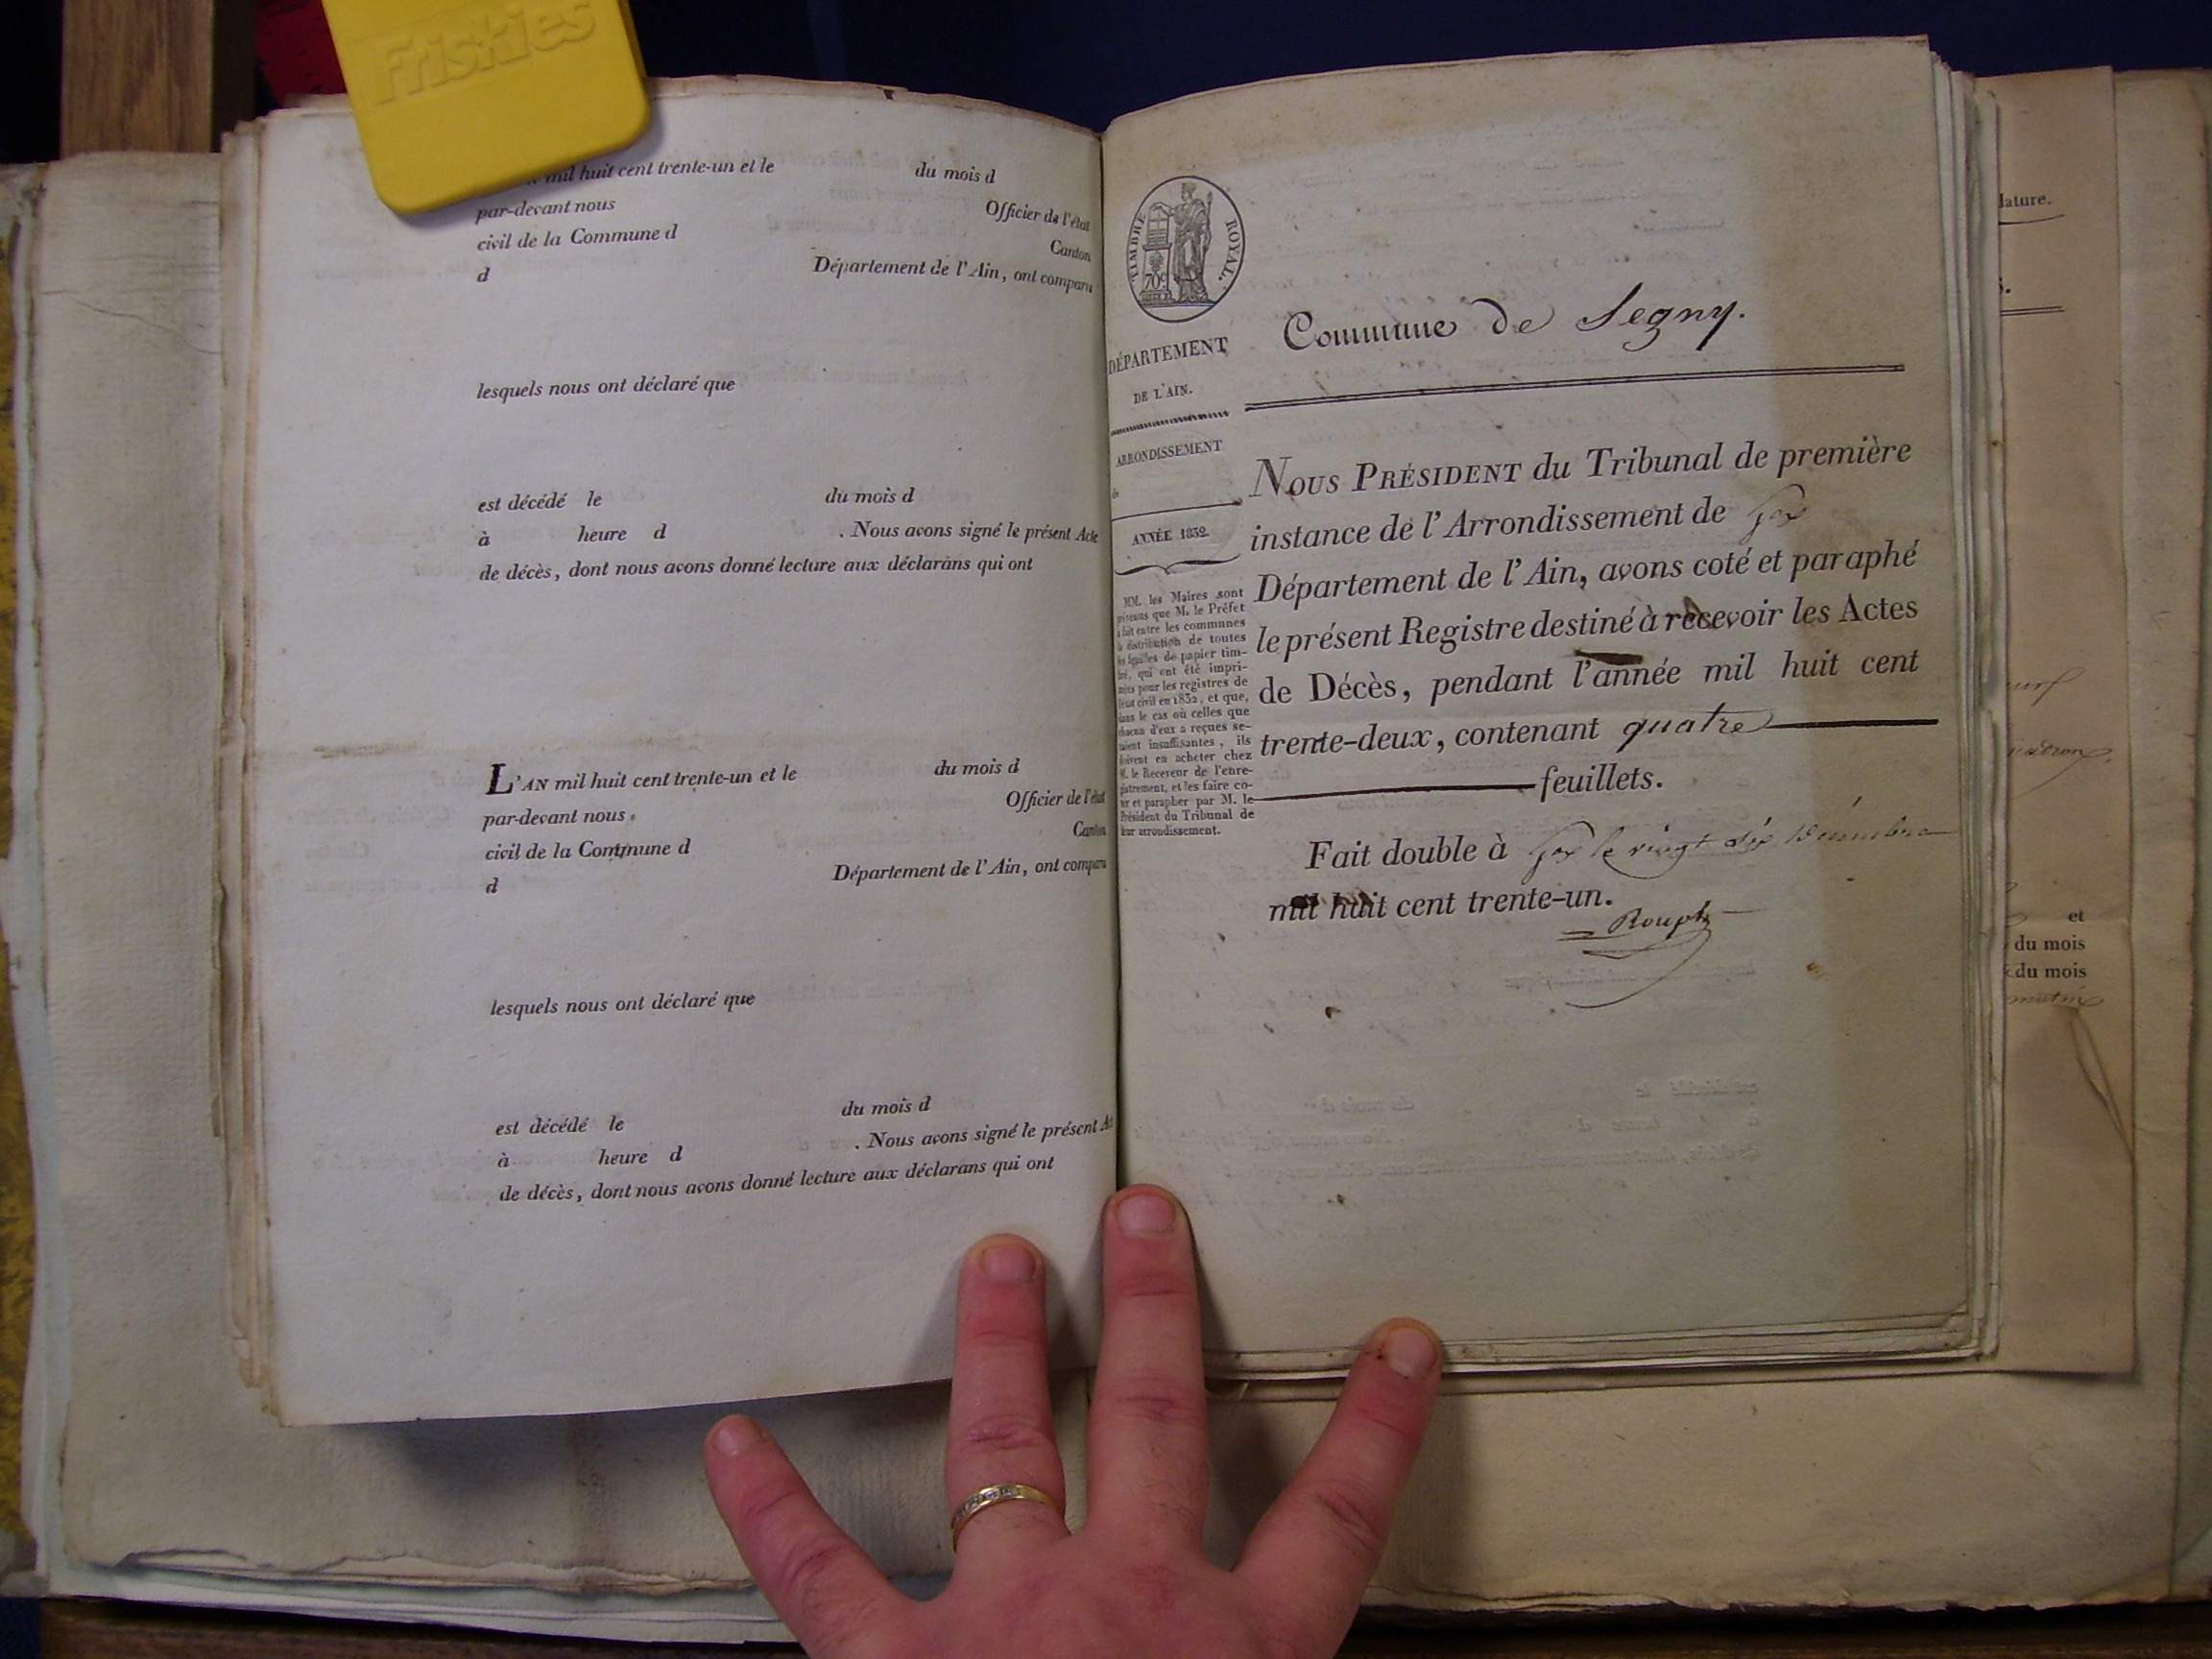 Friskies
mil huit cent trente-un et le du mois d
par-devant nous Officier de l'état
civil de la Commune d Canton
d Département de l'Ain, ont comparu
lesquels nous ont déclaré que
est décédé le du mois d
à heure d . Nous avons signé le présent Acte
de décès, dont nous avons donné lecture aux déclarans qui ont
L'AN mil huit cent trente-un et le du mois d
par-devant nous Officier de l'état
civil de la Commune d Canton
d Département de l'Ain, ont comparu
lesquels nous ont déclaré que
est décédé le du mois d
à heure d . Nous avons signé le présent
de décès, dont nous avons donné lecture aux déclarans qui ont
TIMBRE ROYAL.
70c
DÉPARTEMENT
DE L'AIN.
ARRONDISSEMENT
de
ANNÉE 1832.
MM. les Maires sont
prévenus que M. le Préfet
a fait entre les communes
la distribution de toutes
les feuilles de papier tim-
bré, qui ont été impri-
mées pour les registres de
l'état civil en 1832, et que,
dans le cas où celles que
chacun d'eux a reçues se-
raient insuffisantes, ils
doivent en acheter chez
M. le Receveur de l'enre-
gistrement, et les faire co-
ter et parapher par M. le
Président du Tribunal de
leur arrondissement.
Commune de Segny.
NOUS PRÉSIDENT du Tribunal de première
instance de l'Arrondissement de Gex
Département de l'Ain, avons coté et paraphé
le présent Registre destiné à recevoir les Actes
de Décès, pendant l'année mil huit cent
trente-deux, contenant quatre
feuillets.
Fait double à Gex le vingt six Décembre
mil huit cent trente-un.
Rouph
lature.
et
du mois
du mois
matin